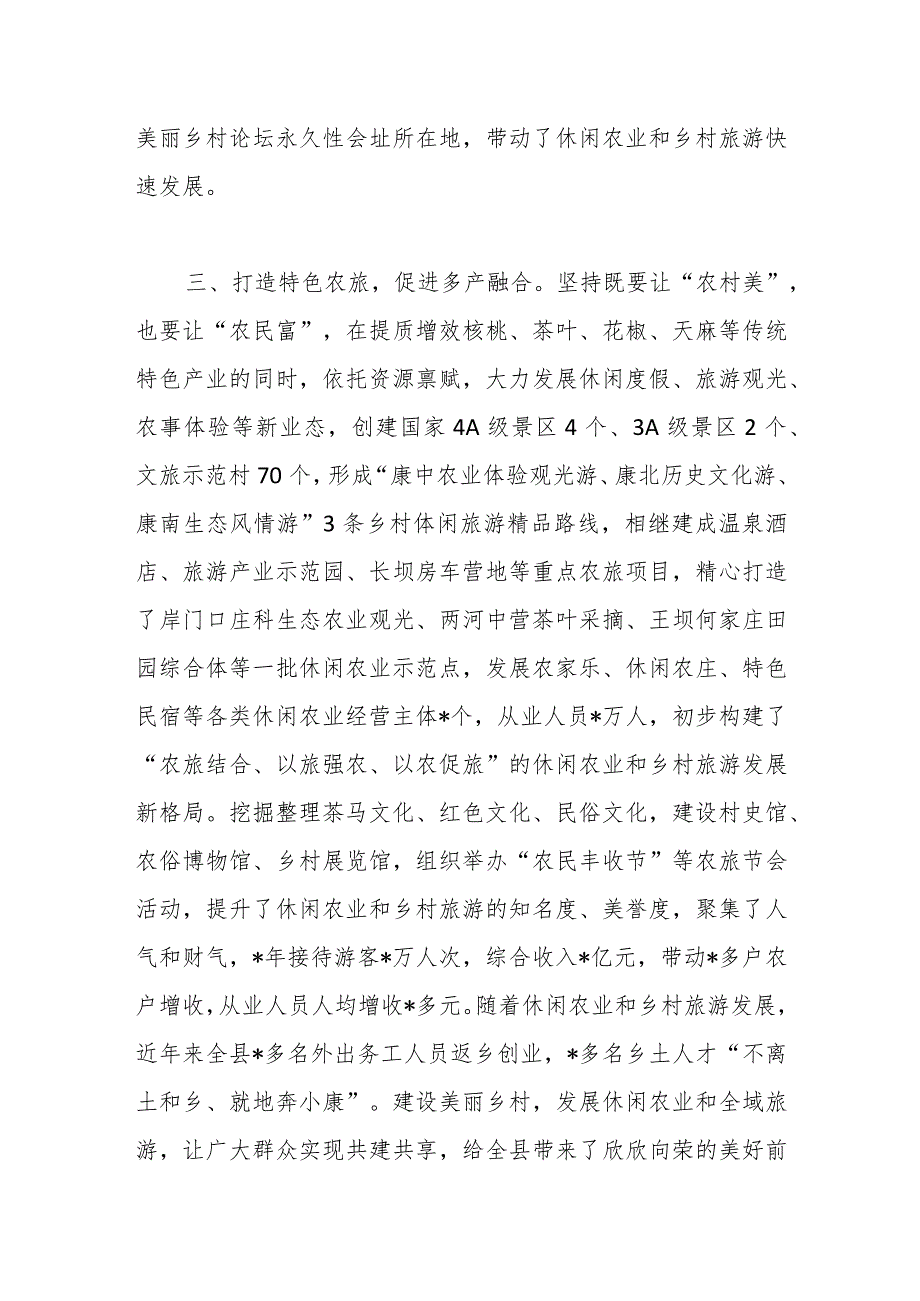 美丽乡村论坛永久性会址所在地，带动了休闲农业和乡村旅游快
速发展。
三、打造特色农旅，促进多产融合。坚持既要让“农村美”，
也要让“农民富”，在提质增效核桃、茶叶、花椒、天麻等传统
特色产业的同时，依托资源禀赋，大力发展休闲度假、旅游观光、
农事体验等新业态，创建国家 4A 级景区 4 个、3A 级景区 2 个、
文旅示范村 70 个，形成“康中农业体验观光游、康北历史文化游、
康南生态风情游”3 条乡村休闲旅游精品路线，相继建成温泉酒
店、旅游产业示范园、长坝房车营地等重点农旅项目，精心打造
了岸门口庄科生态农业观光、两河中营茶叶采摘、王坝何家庄田
园综合体等一批休闲农业示范点，发展农家乐、休闲农庄、特色
民宿等各类休闲农业经营主体*个，从业人员*万人，初步构建了
“农旅结合、以旅强农、以农促旅”的休闲农业和乡村旅游发展
新格局。挖掘整理茶马文化、红色文化、民俗文化，建设村史馆、
农俗博物馆、乡村展览馆，组织举办“农民丰收节”等农旅节会
活动，提升了休闲农业和乡村旅游的知名度、美誉度，聚集了人
气和财气，*年接待游客*万人次，综合收入*亿元，带动*多户农
户增收，从业人员人均增收*多元。随着休闲农业和乡村旅游发展，
近年来全县*多名外出务工人员返乡创业，*多名乡土人才“不离
土和乡、就地奔小康”。建设美丽乡村，发展休闲农业和全域旅
游，让广大群众实现共建共享，给全县带来了欣欣向荣的美好前